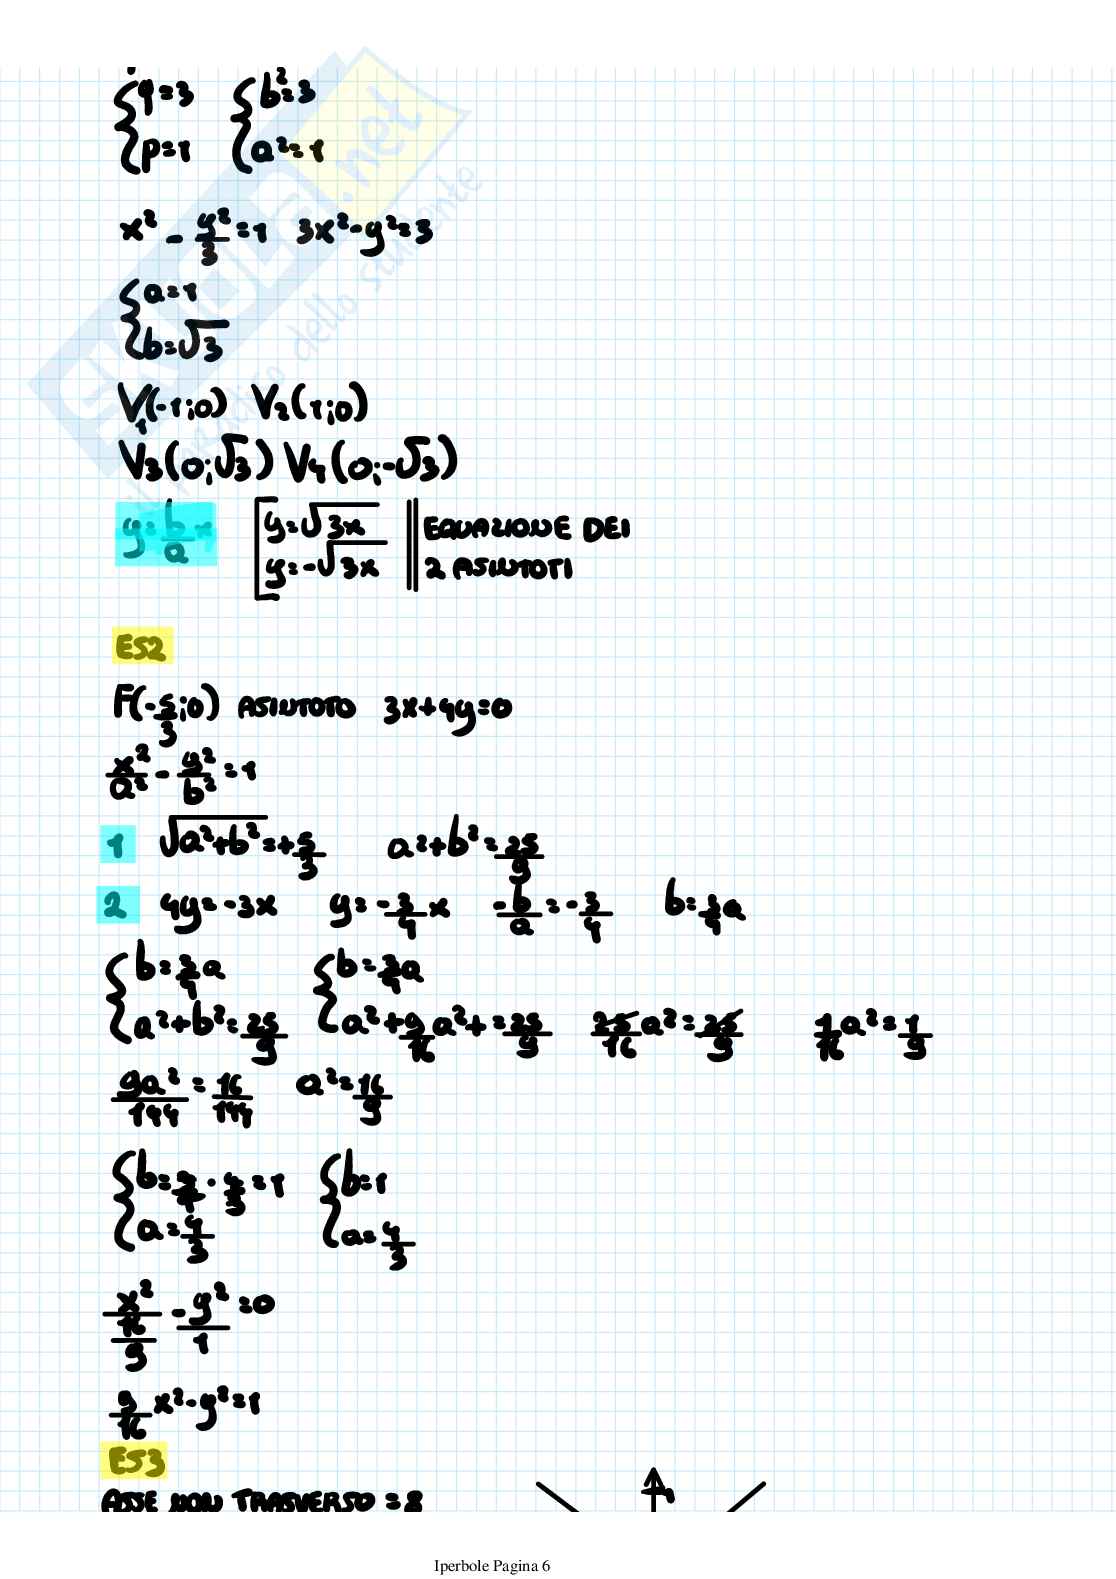 {q=3 {b²=3
{p=1 {a²=1
x² - y²/3 = 1 3x²-y²=3
{a=1
{b=√3
V₁(-1;0) V₂(1;0)
V₃(0;√3) V₄(0;-√3)
y=b/a x [y=√3x || EQUAZIONE DEI
[y=-√3x || 2 ASINTOTI
ES2
F(-5/3;0) ASINTOTO 3x+4y=0
x²/a² - y²/b² = 1
1 √a²+b² = +5/3 a²+b²=25/9
2 4y=-3x y=-3/4 x -b/a=-3/4 b=3/4 a
{b=3/4 a {b=3/4 a
{a²+b²=25/9 {a²+9/16 a²+=25/9 25/16 a²=25/9 1/16 a²=1/9
9a²/144 = 16/144 a²=16/9
{b=3/4 · 4/3 = 1 {b=1
{a=4/3 {a=4/3
x²/(16/9) - y²/1 = 0
9/16 x²-y²=1
ES3
ASSE NON TRASVERSO = 8
SKUOLA.net
il paradiso dello studente
Iperbole Pagina 6